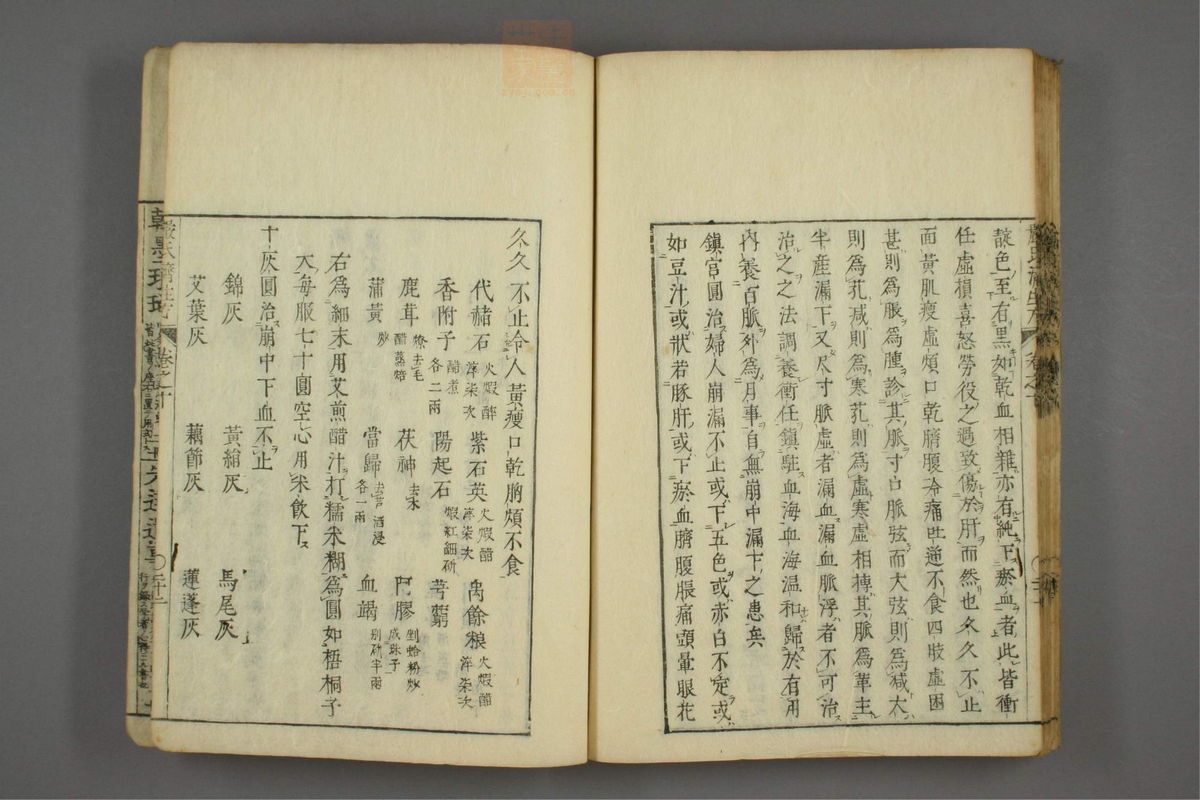 靛色至有黑如乾血相雜亦有純下瘀血者此皆衝
任虛損喜怒勞役之過致傷於肝而然也久久不止
面黃肌瘦虛煩口乾臍腹冷痛吐逆不食四肢虛困
甚則為脹為腫診其脈寸口脈弦而大弦則為減大
則為芤減則為寒芤則為虛寒虛相摶其脈為革主
半産漏下又尺寸脈虛者漏血漏血脈浮者不可治
治之之法調養衝任鎮駐血海血海温和歸於有用
內養百脈外為月事自無崩中漏下之患矣
鎮宮圓治婦人崩漏不止或下五色或赤白不定或
如豆汁或狀若豚肝或下瘀血臍腹脹痛頭暈眼花
久久不止令人黃瘦口乾胸煩不食
代赭石 火煅醋淬柒次 紫石英 火煅醋淬柒次 禹餘粮 火煅醋淬柒次
香附子 醋煮各二兩 陽起石 煅紅細研 芎藭
鹿茸 燎去毛醋蒸焙 茯神 去木 阿膠 剉蛤粉炒成珠子
蒲黃 炒 當歸 去芦酒浸各一兩 血竭 別研半兩
右為細末用艾煎醋汁打糯米糊為圓如梧桐子
大每服七十圓空心用米飲下
十灰圓治崩中下血不止
錦灰 黃絹灰 馬尾灰
艾葉灰 藕節灰 蓮蓬灰